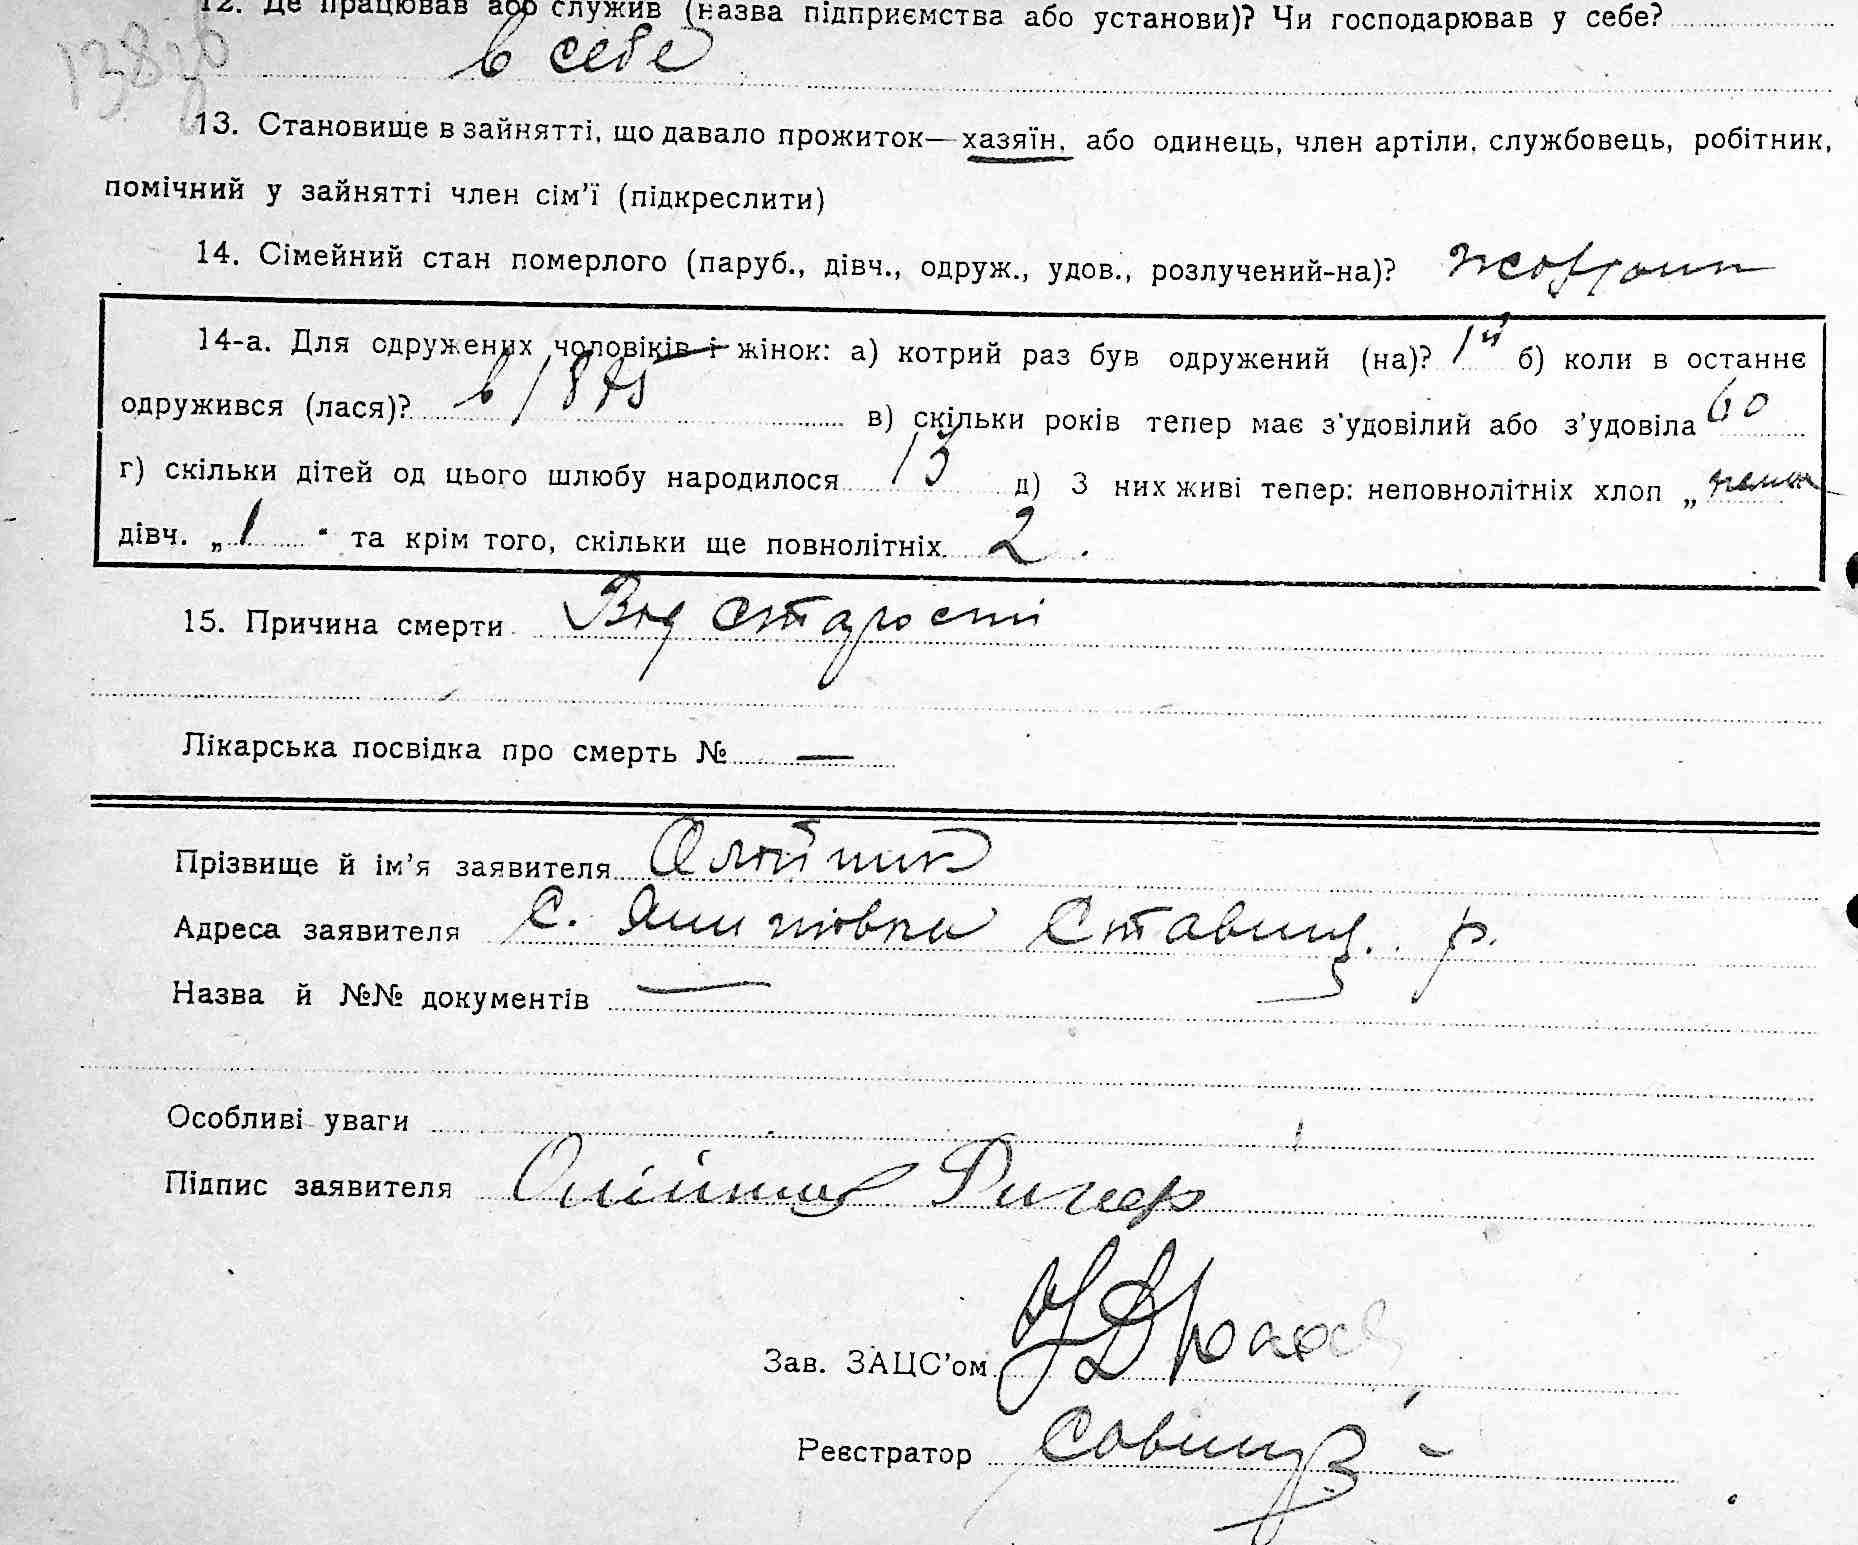 12. Де працював або служив (назва підприємства або установи)? Чи господарював у себе?
138
в себе
13. Становище в зайнятті, що давало прожиток—хазяїн, або одинець, член артіли, службовець, робітник,
помічний у зайнятті член сім'ї (підкреслити)
14. Сімейний стан померлого (паруб., дівч., одруж., удов., розлучений-на)?
14-а. Для одружених чоловіків і жінок: а) котрий раз був одружений (на)? 1й б) коли в останнє
одружився (лася)? в 1875 в) скільки років тепер має з'удовілий або з'удовіла 60
г) скільки дітей од цього шлюбу народилося 13 д) З них живі тепер: неповнолітніх хлоп „ нема
дівч. „ 1 " та крім того, скільки ще повнолітніх 2.
15. Причина смерти Від старости
Лікарська посвідка про смерть № —
Прізвище й ім'я заявителя Олійник
Адреса заявителя с. Ставищ. р.
Назва й №№ документів —
Особливі уваги
Підпис заявителя Олійник
Зав. ЗАЦС'ом
Реєстратор